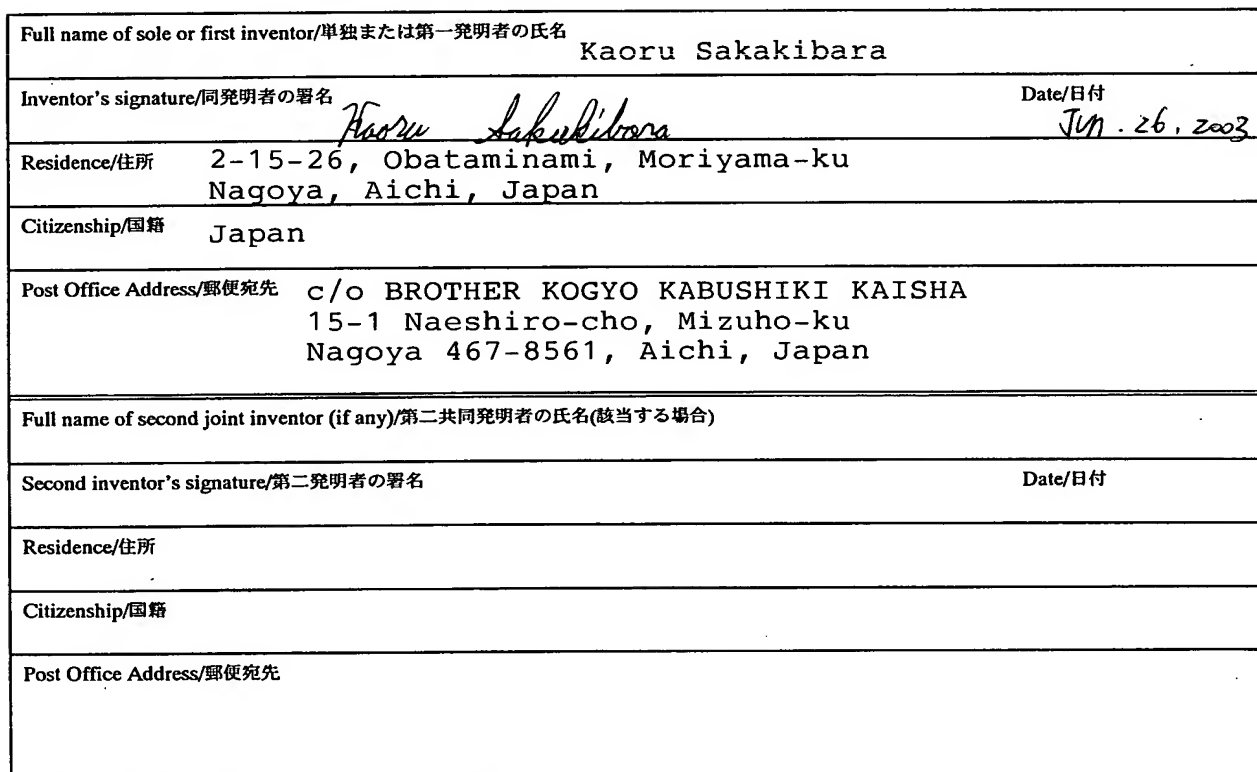 Full name of sole or first inventor/単独または第一発明者の氏名
Kaoru Sakakibara
Inventor's signature/同発明者の署名 Kaoru Sakakibara Date/日付 Jun. 26, 2003
Residence/住所 2-15-26, Obataminami, Moriyama-ku
Nagoya, Aichi, Japan
Citizenship/国籍 Japan
Post Office Address/郵便宛先 c/o BROTHER KOGYO KABUSHIKI KAISHA
15-1 Naeshiro-cho, Mizuho-ku
Nagoya 467-8561, Aichi, Japan
Full name of second joint inventor (if any)/第二共同発明者の氏名(該当する場合)
Second inventor's signature/第二発明者の署名 Date/日付
Residence/住所
Citizenship/国籍
Post Office Address/郵便宛先